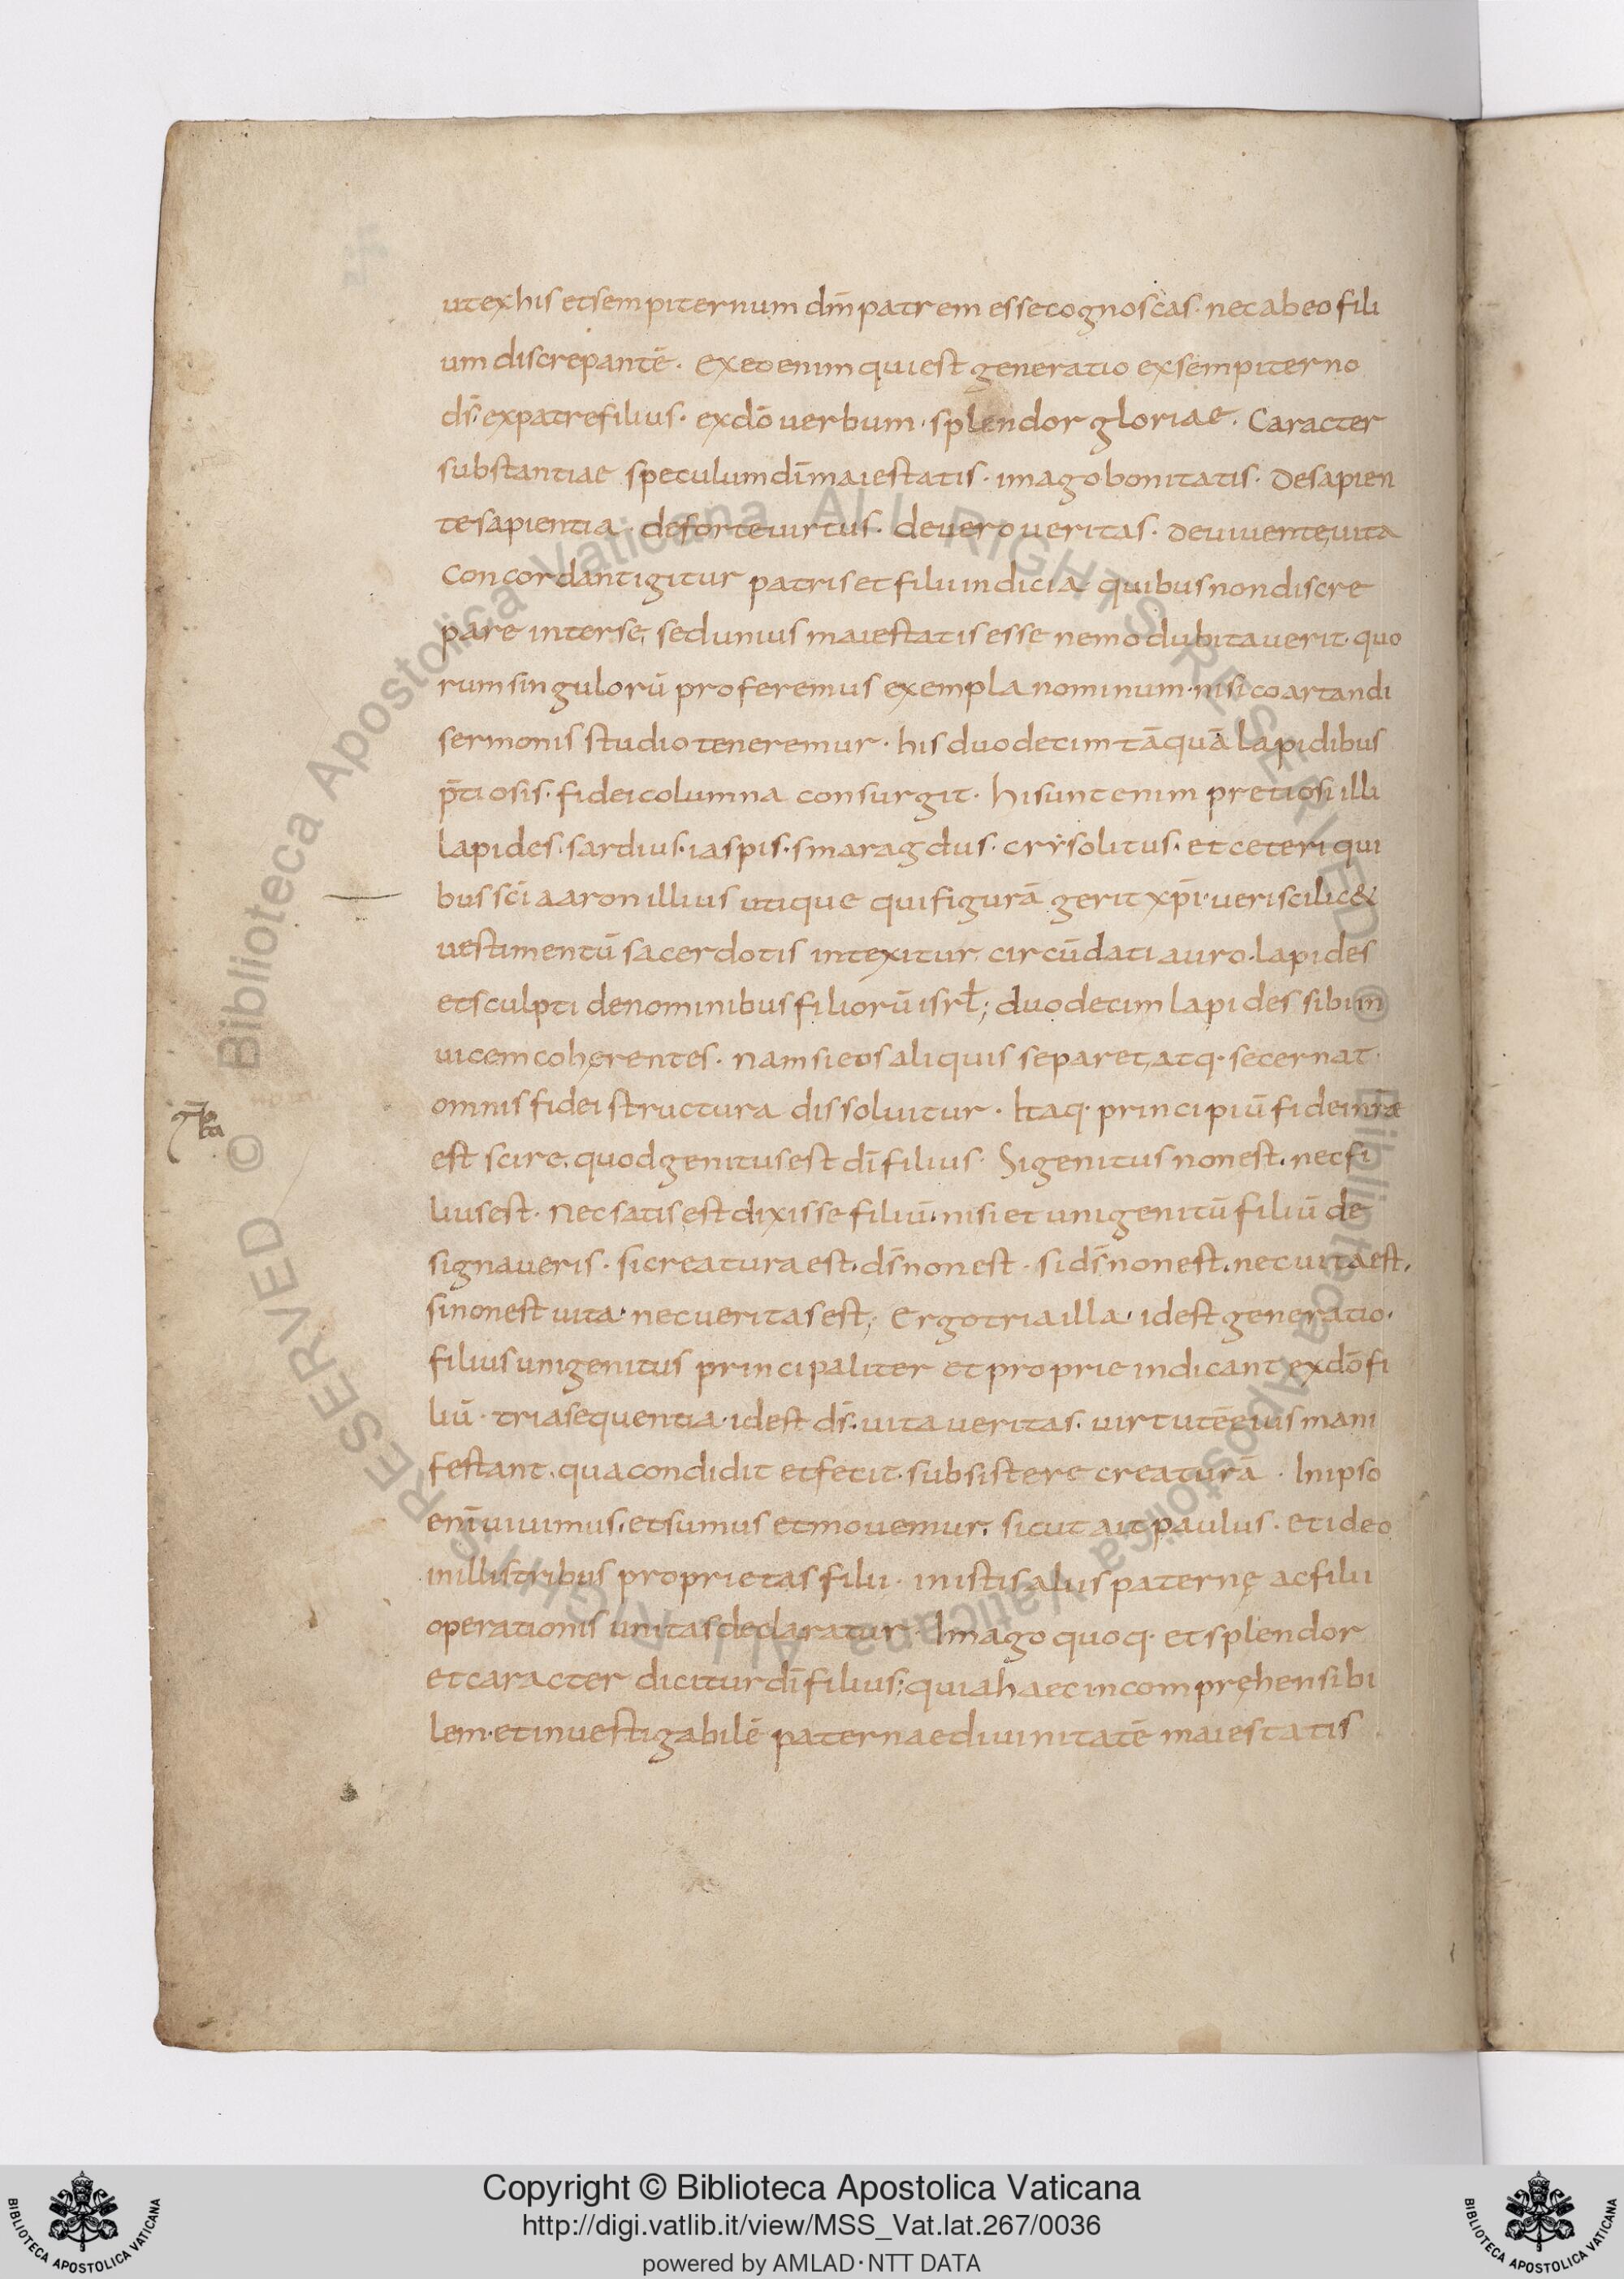 ut ex his et sempiternum dm̄ patrem esse cognoscas· nec ab eo fili
um discrepantē· Ex eo enim qui est generatio ex sempiterno
ds̄· ex patre filius· ex dō verbum· splendor gloriae· Caracter
substantiae speculum dī maiestatis· imago bonitatis· De sapien
te sapientia· de forte virtus· de vero veritas· De vivente, vita
Concordant igitur patris et filii indicia quibus non discre
pare inter se, sed unius maiestatis esse nemo dubitaverit· quo
rum singulorū proferemus exempla nominum· nisi coartandi
sermonis studio teneremur· his duodecim tāquā lapidibus
p̄tiosis· fidei columna consurgit· Hi sunt enim pretiosi illi
lapides· sardius· iaspis· smaragdus· crẏsolitus· et ceteri qui
bus sc̄i aaron illius utique qui figurā gerit xp̄i· veri scilic&
vestimentū sacerdotis intexitur· circūdati auro· lapides
et sculpti de nominibus filiorū isrł; duodecim lapides sibi in
vicem coherentes· Nam si eos aliquis separet, atq· secernat·
omnis fidei structura dissolvitur· Itaq· principiū fidei nr̄ae
est scire· quod genitus est dī filius· Si genitus non est· nec fi
lius est· Nec satis est dixisse filiū· nisi et unigenitū filiū de
signaveris· si creatura est· ds̄ non est· si ds̄ non est· nec vita est·
si non est vita· nec veritas est; Ergo tria illa· id est generatio·
filius unigenitus principaliter et proprie indicant ex dō fi
liū· tria sequentia· id est ds̄· vita veritas· virtutē eius mani
festant· qua condidit et fecit· subsistere creaturā· In ipso
enī vivimus· et sumus et movemur· sicut ait paulus· et ideo
in illis tribus proprietas filii· in istis aliis paternę ac filii
operationis unitas declaratur· Imago quoq· et splendor
et caracter dicitur dī filius; quia haec incomprehensibi
lem· et investigabilē paternae divinitatē maiestatis
Copyright © Biblioteca Apostolica Vaticana
http://digi.vatlib.it/view/MSS_Vat.lat.267/0036
powered by AMLAD·NTT DATA
BIBLIOTECA APOSTOLICA VATICANA
BIBLIOTECA APOSTOLICA VATICANA
© Biblioteca Apostolica Vaticana ALL RIGHTS RESERVED
© Biblioteca Apostolica Vaticana ALL RIGHTS RESERVED